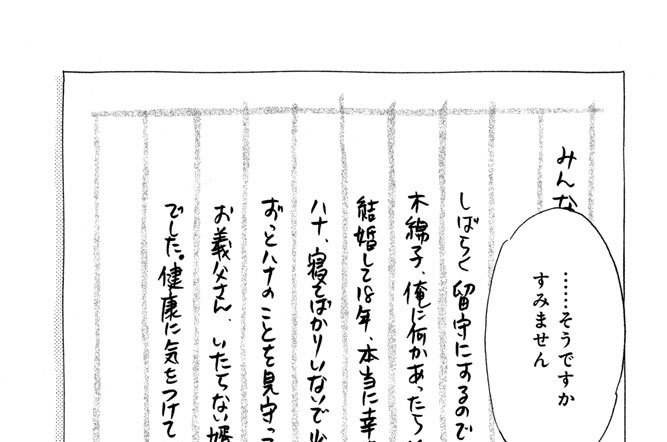 みんな
……そうですか
すみません
しばらく留守にするので
木綿子、俺に何かあったら
結婚して18年、本当に幸
ハナ、寝てばかりいないで
ずっとハナのことを見守っ
お義父さん、いたらない婿
でした。健康に気をつけて